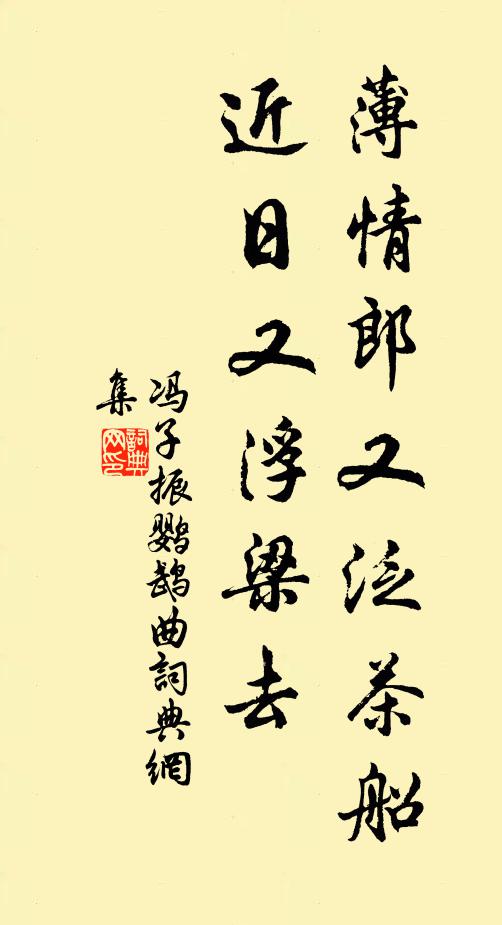 薄情郎又泛茶船
近日又浮梁去
冯子振鹦鹉曲詞典網
集
詞典
网印